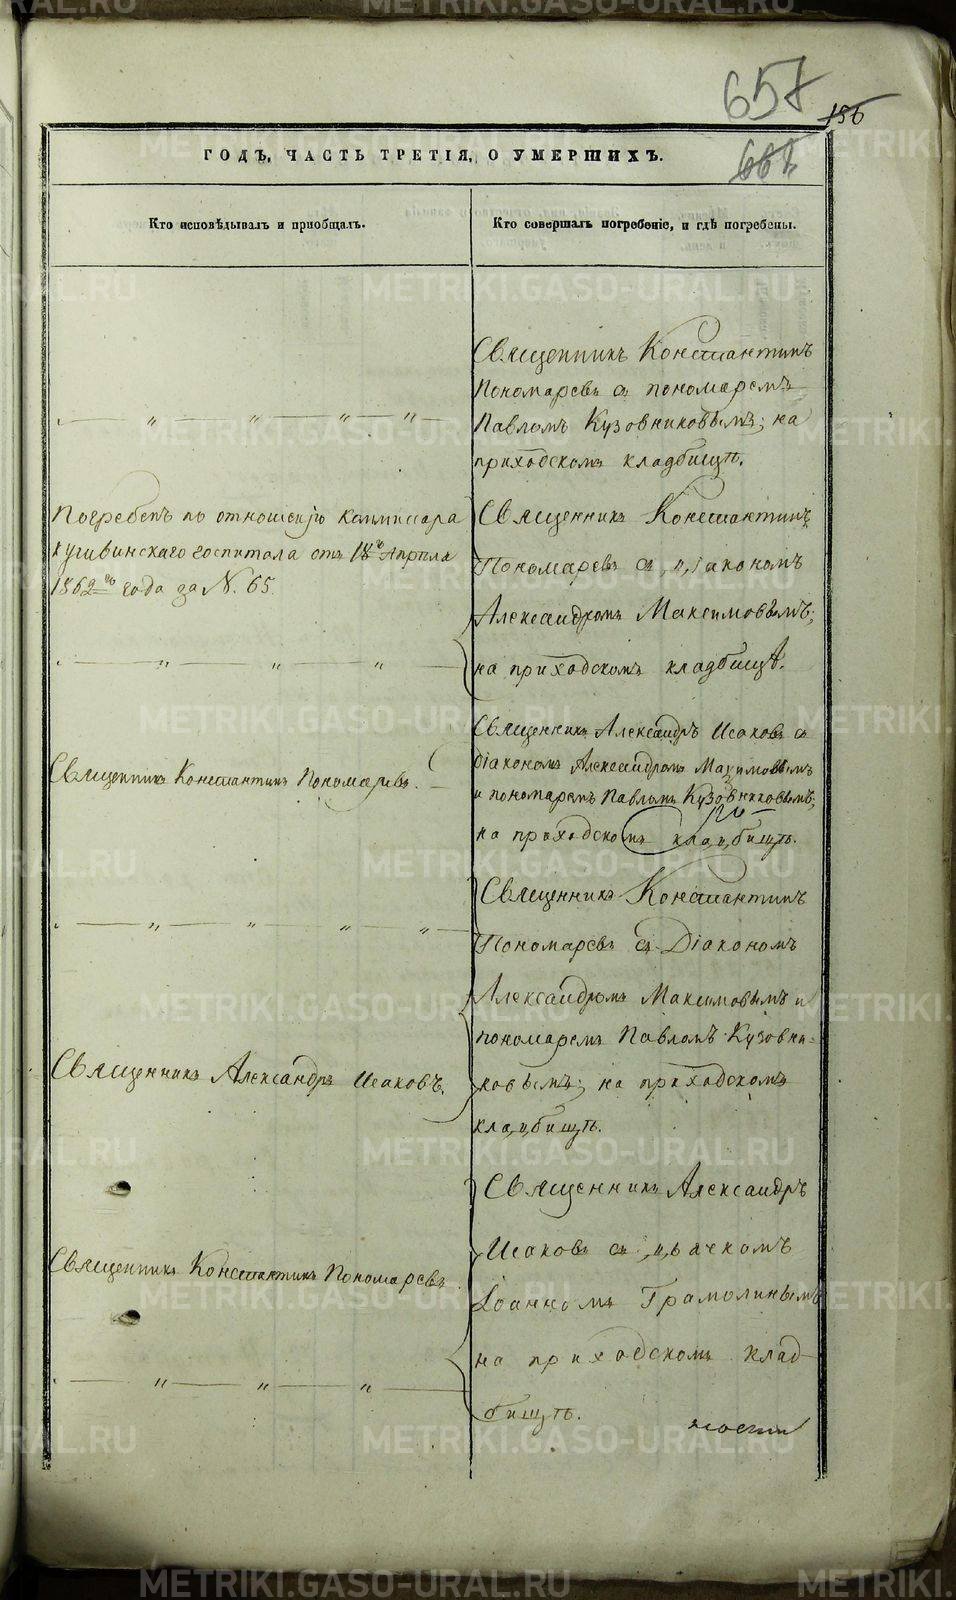 657
156
661
ГОДЪ, ЧАСТЬ ТРЕТІЯ, О УМЕРШИХЪ.
Кто исповѣдывалъ и пріобщалъ.
Кто совершалъ погребеніе, и гдѣ погребены.
Священникъ Константинъ
Пономаревъ съ пономаремъ
Павломъ Кузовниковымъ; на
приходскомъ кладбищѣ.
Погребенъ по отношенію Коммиссара
Кушвинскаго госпиталя отъ 18го Апрѣля
1862го года за N. 65.
Священникъ Константинъ
Пономаревъ съ діакономъ
Александромъ Максимовымъ;
на приходскомъ кладбищѣ.
Священникъ Константинъ Пономаревъ.
Священникъ Александръ Исаковъ съ
діакономъ Александромъ Максимовымъ
и пономаремъ Павломъ Кузовниковымъ;
на приходскомъ кладбищѣ.
Священникъ Константинъ
Пономаревъ съ Діакономъ
Александромъ Максимовымъ и
пономаремъ Павломъ Кузовни-
ковымъ; на приходскомъ
кладбищѣ.
Священникъ Александръ Исаковъ.
Священникъ Александръ
Исаковъ съ дьячкомъ
Іоанномъ Грамолинымъ
на приходскомъ клад-
бищѣ.
Священникъ Константинъ Пономаревъ
METRIKI.GASO-URAL.RU